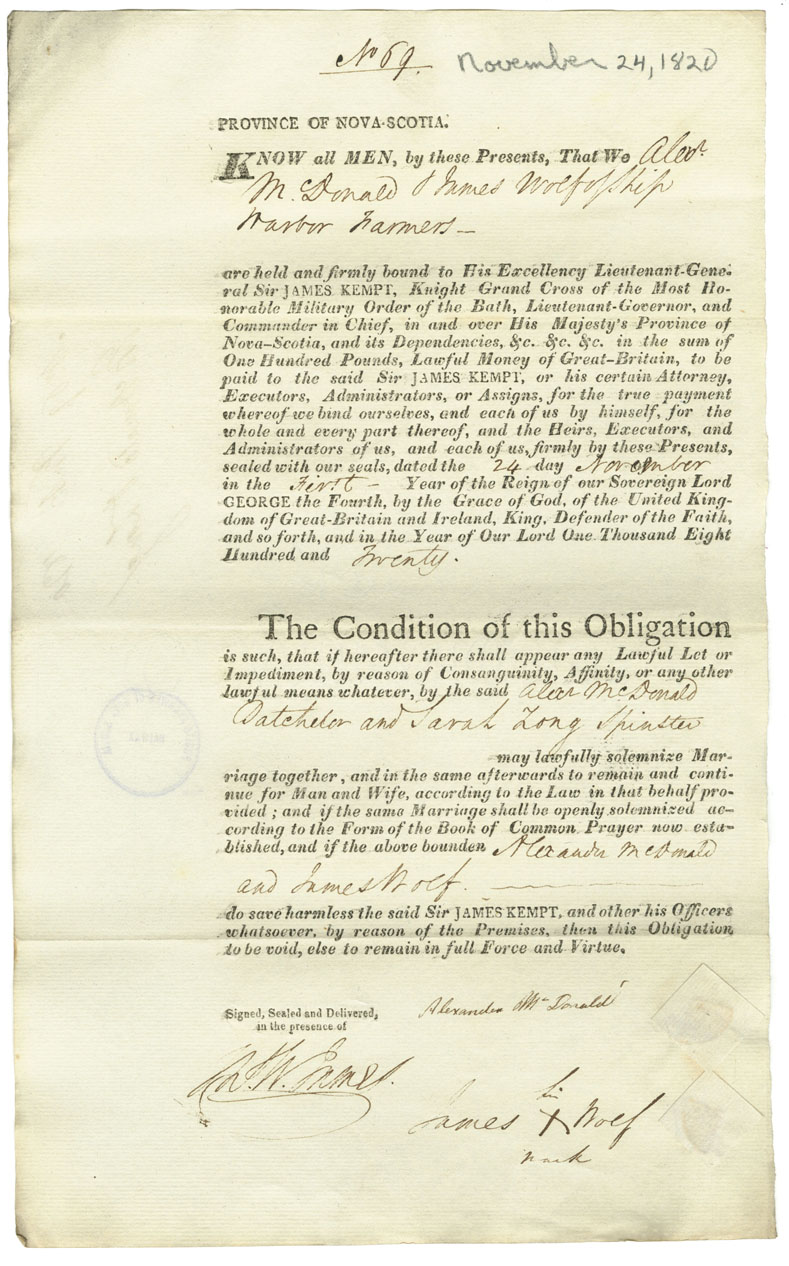 No 69.
November 24, 1820
PROVINCE OF NOVA-SCOTIA.
KNOW all MEN, by these Presents, That We Alexr.
McDonald & James Wolf of Ship
Harbor Farmers —
are held and firmly bound to His Excellency Lieutenant-Gene-
ral Sir JAMES KEMPT, Knight Grand Cross of the Most Ho-
norable Military Order of the Bath, Lieutenant-Governor, and
Commander in Chief, in and over His Majesty's Province of
Nova-Scotia, and its Dependencies, &c. &c. &c. in the sum of
One Hundred Pounds, Lawful Money of Great-Britain, to be
paid to the said Sir JAMES KEMPT, or his certain Attorney,
Executors, Administrators, or Assigns, for the true payment
whereof we bind ourselves, and each of us by himself, for the
whole and every part thereof, and the Heirs, Executors, and
Administrators of us, and each of us, firmly by these Presents,
sealed with our seals, dated the 24 day November
in the First — Year of the Reign of our Sovereign Lord
GEORGE the Fourth, by the Grace of God, of the United King-
dom of Great-Britain and Ireland, King, Defender of the Faith,
and so forth, and in the Year of Our Lord One Thousand Eight
Hundred and Twenty.
The Condition of this Obligation
is such, that if hereafter there shall appear any Lawful Let or
Impediment, by reason of Consanguinity, Affinity, or any other
lawful means whatever, by the said Alexr McDonald
Batchelor and Sarah Long Spinster
may lawfully solemnize Mar-
riage together, and in the same afterwards to remain and conti-
nue for Man and Wife, according to the Law in that behalf pro-
vided; and if the same Marriage shall be openly solemnized ac-
cording to the Form of the Book of Common Prayer now esta-
blished, and if the above bounden Alexander McDonald
and James Wolf. —
do save harmless the said Sir JAMES KEMPT, and other his Officers
whatsoever, by reason of the Premises, then this Obligation
to be void, else to remain in full Force and Virtue.
Signed, Sealed and Delivered,
in the presence of
Alexander McDonald
James
his
X Wolf
mark